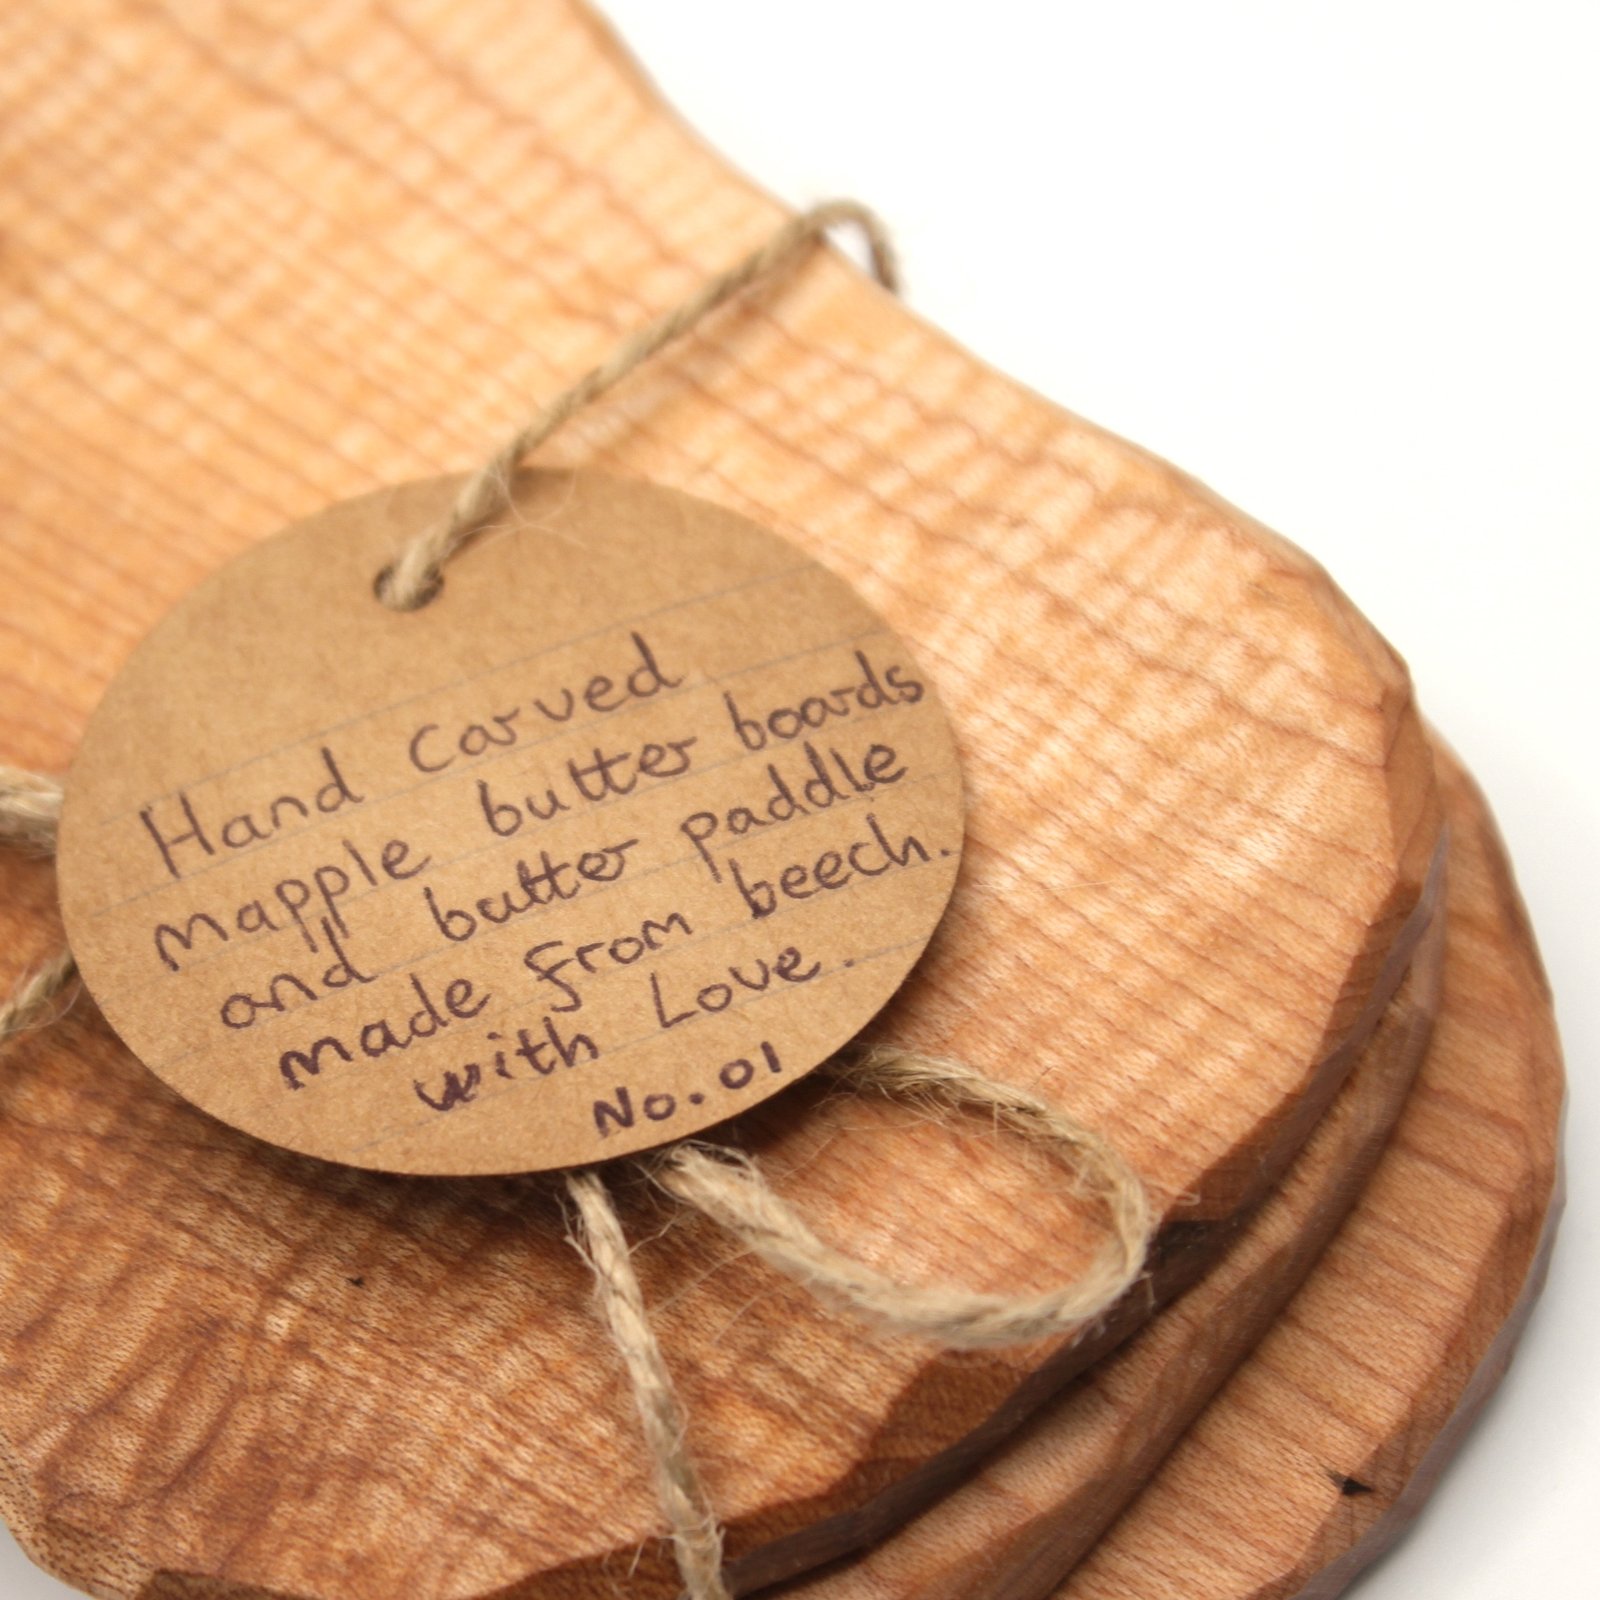 Hand Carved
mapple butter boards
and butter paddle
made from beech.
with Love.
No. 01